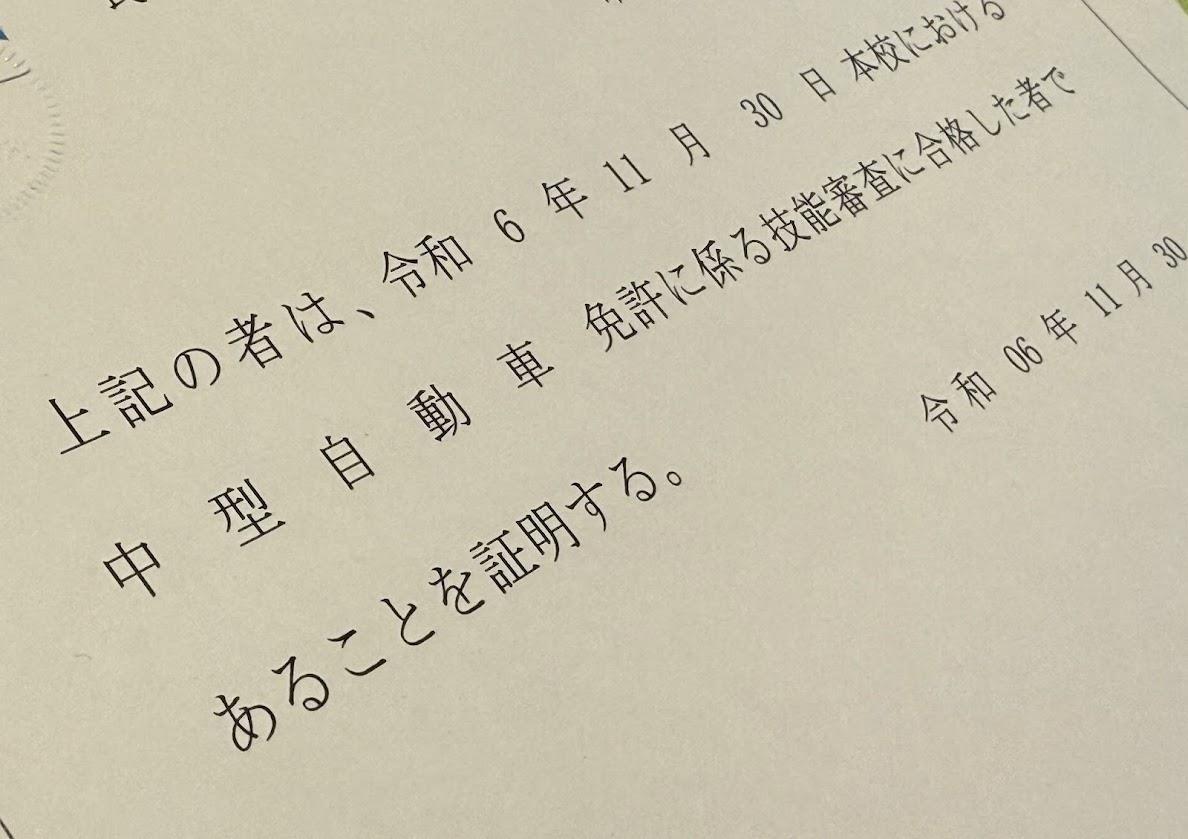 上記の者は、令和 6 年 11 月 30 日 本校における
中 型 自 動 車 免許に係る技能審査に合格した者で
あることを証明する。
令和 06 年 11 月 30